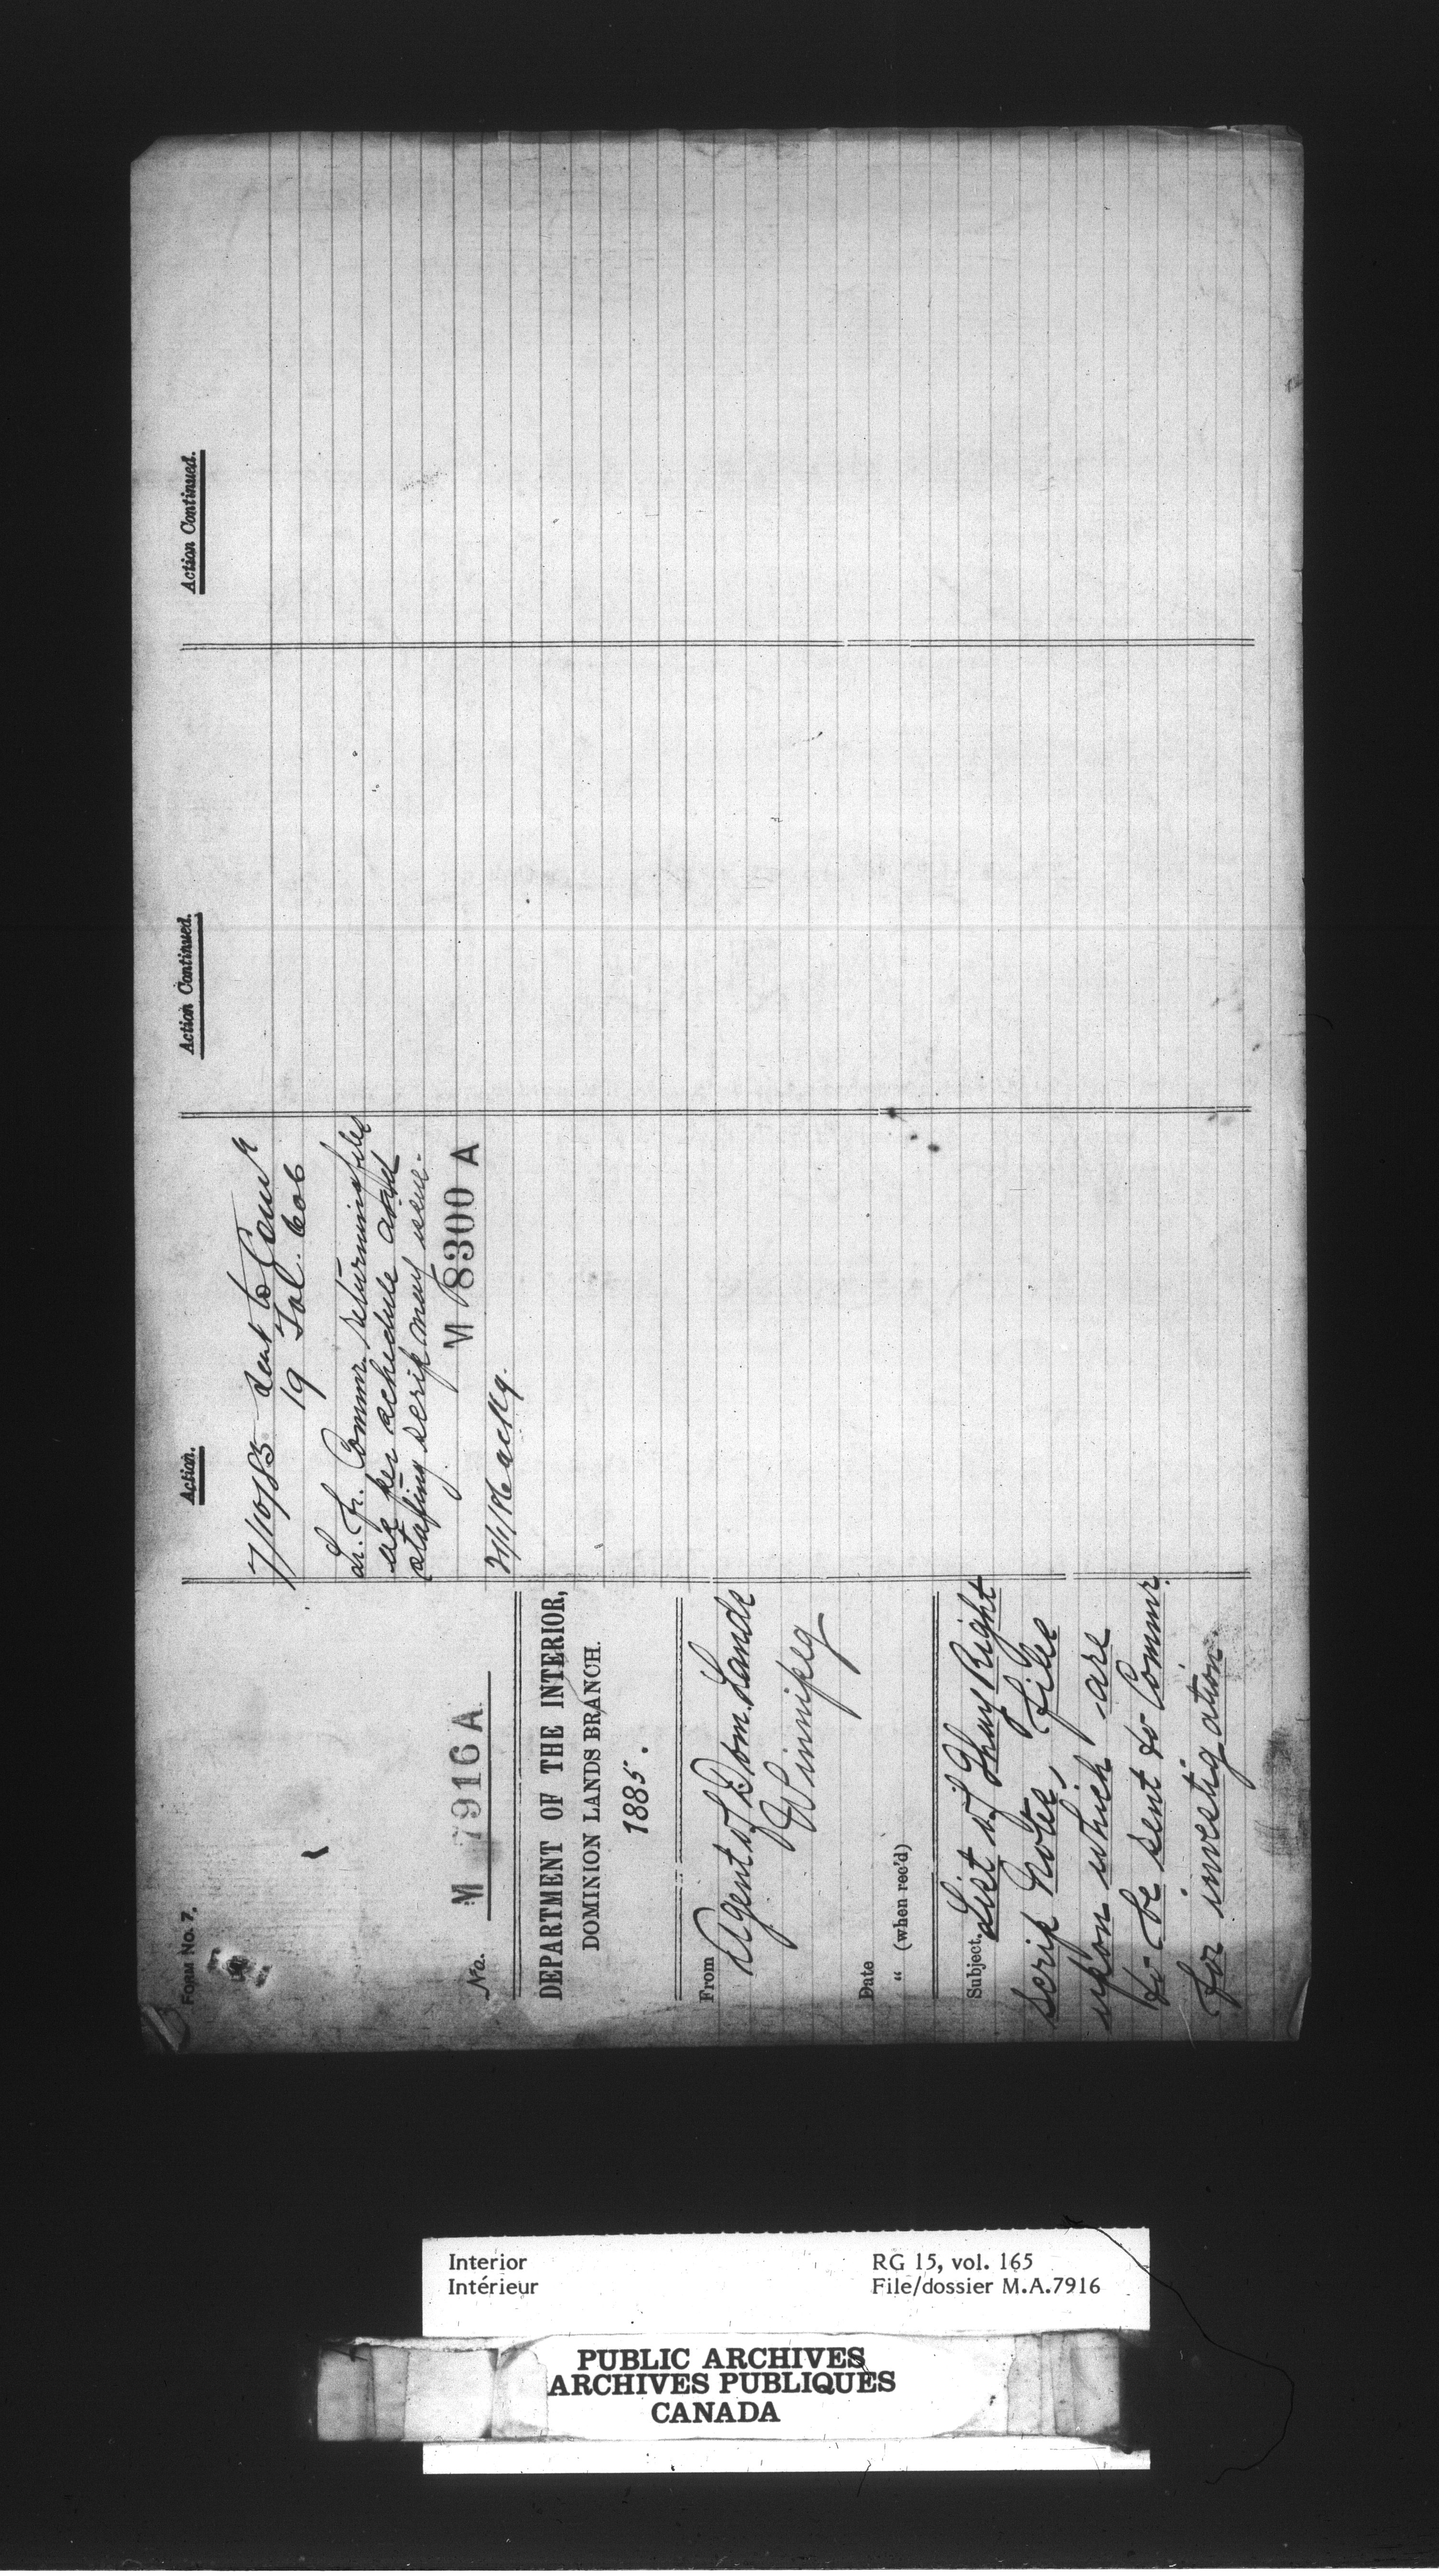 FORM No. 7.
No. M 7916 A
DEPARTMENT OF THE INTERIOR,
DOMINION LANDS BRANCH.
1885.
From Agent of Dom. Lands
Winnipeg
Date
" (when rec'd)
Subject. List of Hay Right
scrip notes, files
upon which are
to be sent to Commr.
for investigation.
Action.
7/10/85 Sent to Comr
19 Fol. 606
Lr. fr. Commr. returning files
as per schedule and
stating scrip may issue.
M 8300 A
Action Continued.
Action Continued.
Interior
Intérieur
RG 15, vol. 165
File/dossier M.A.7916
PUBLIC ARCHIVES
ARCHIVES PUBLIQUES
CANADA